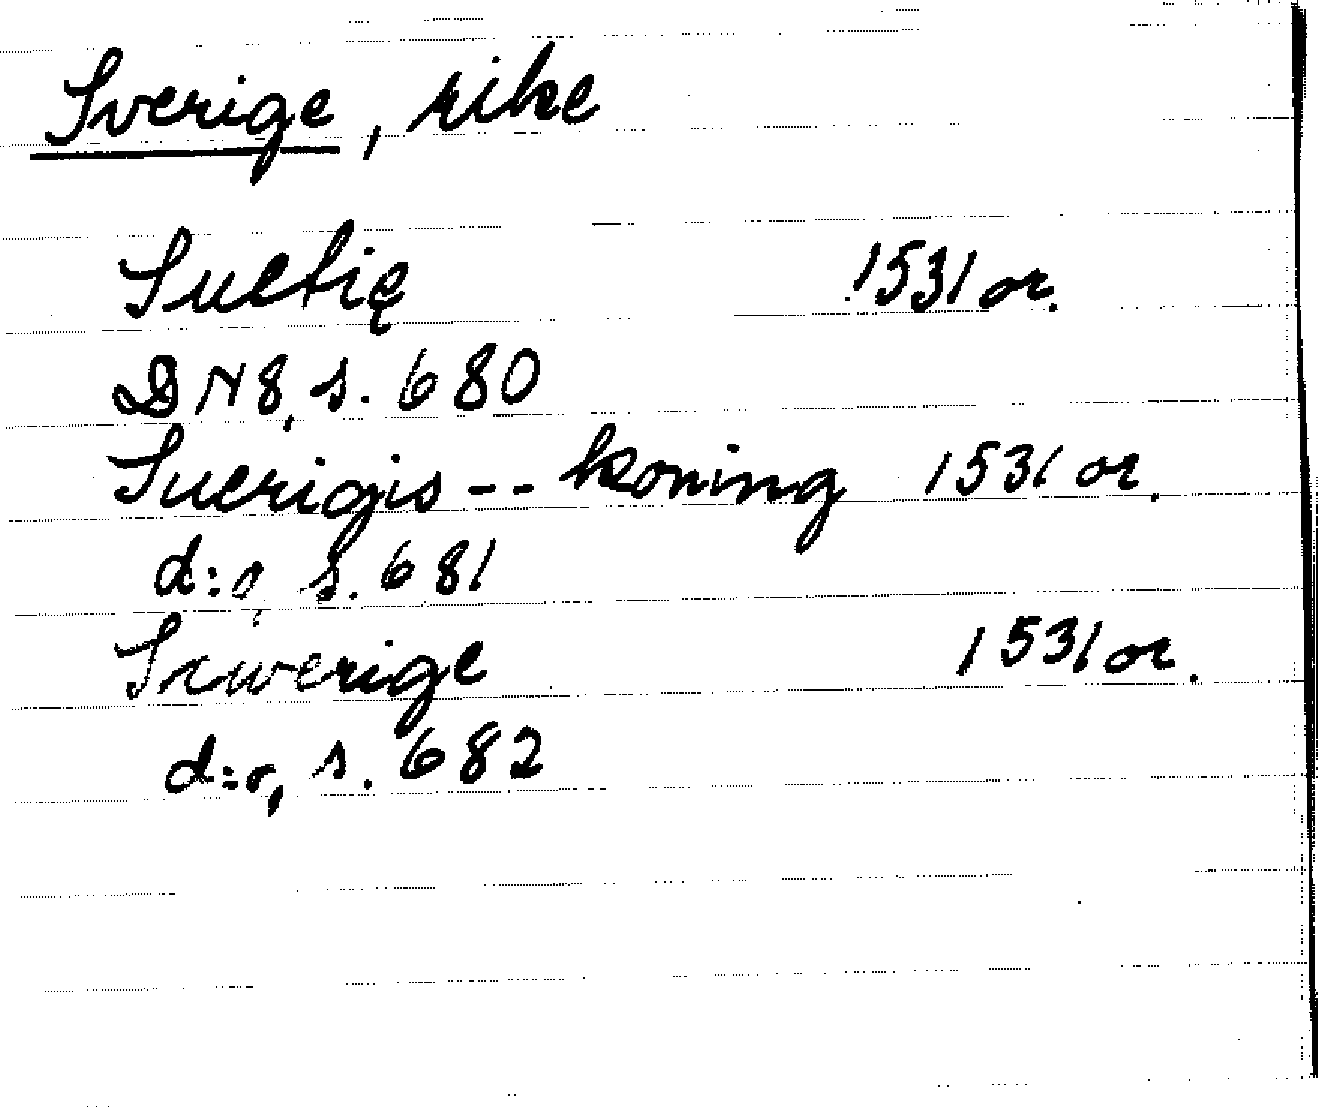 Sverige, rike
Suetię 1531 or.
DN 8, s. 680
Suerigis -- koning 1531 or.
d:o, s. 681
Szwerige 1531 or.
d:o, s. 682